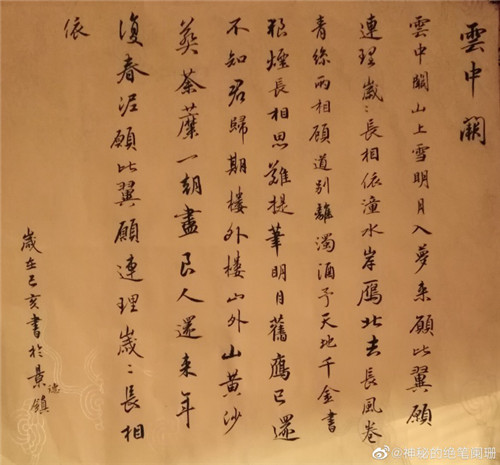 雲中闕
雲中闕山上雪明月入夢来願比翼願
連理歲〻長相依潼水岸鴈北去長風卷
青絲兩相顧道別離濁酒予天地千金書
狼煙長相思難提筆明月舊鷹已還
不知君歸期樓外樓山外山黃沙
葵荼蘼一朝盡良人還来年
復春泥願比翼願連理歲〻長相
依
歲在己亥書於景德鎮
@神秘的绝笔阑珊